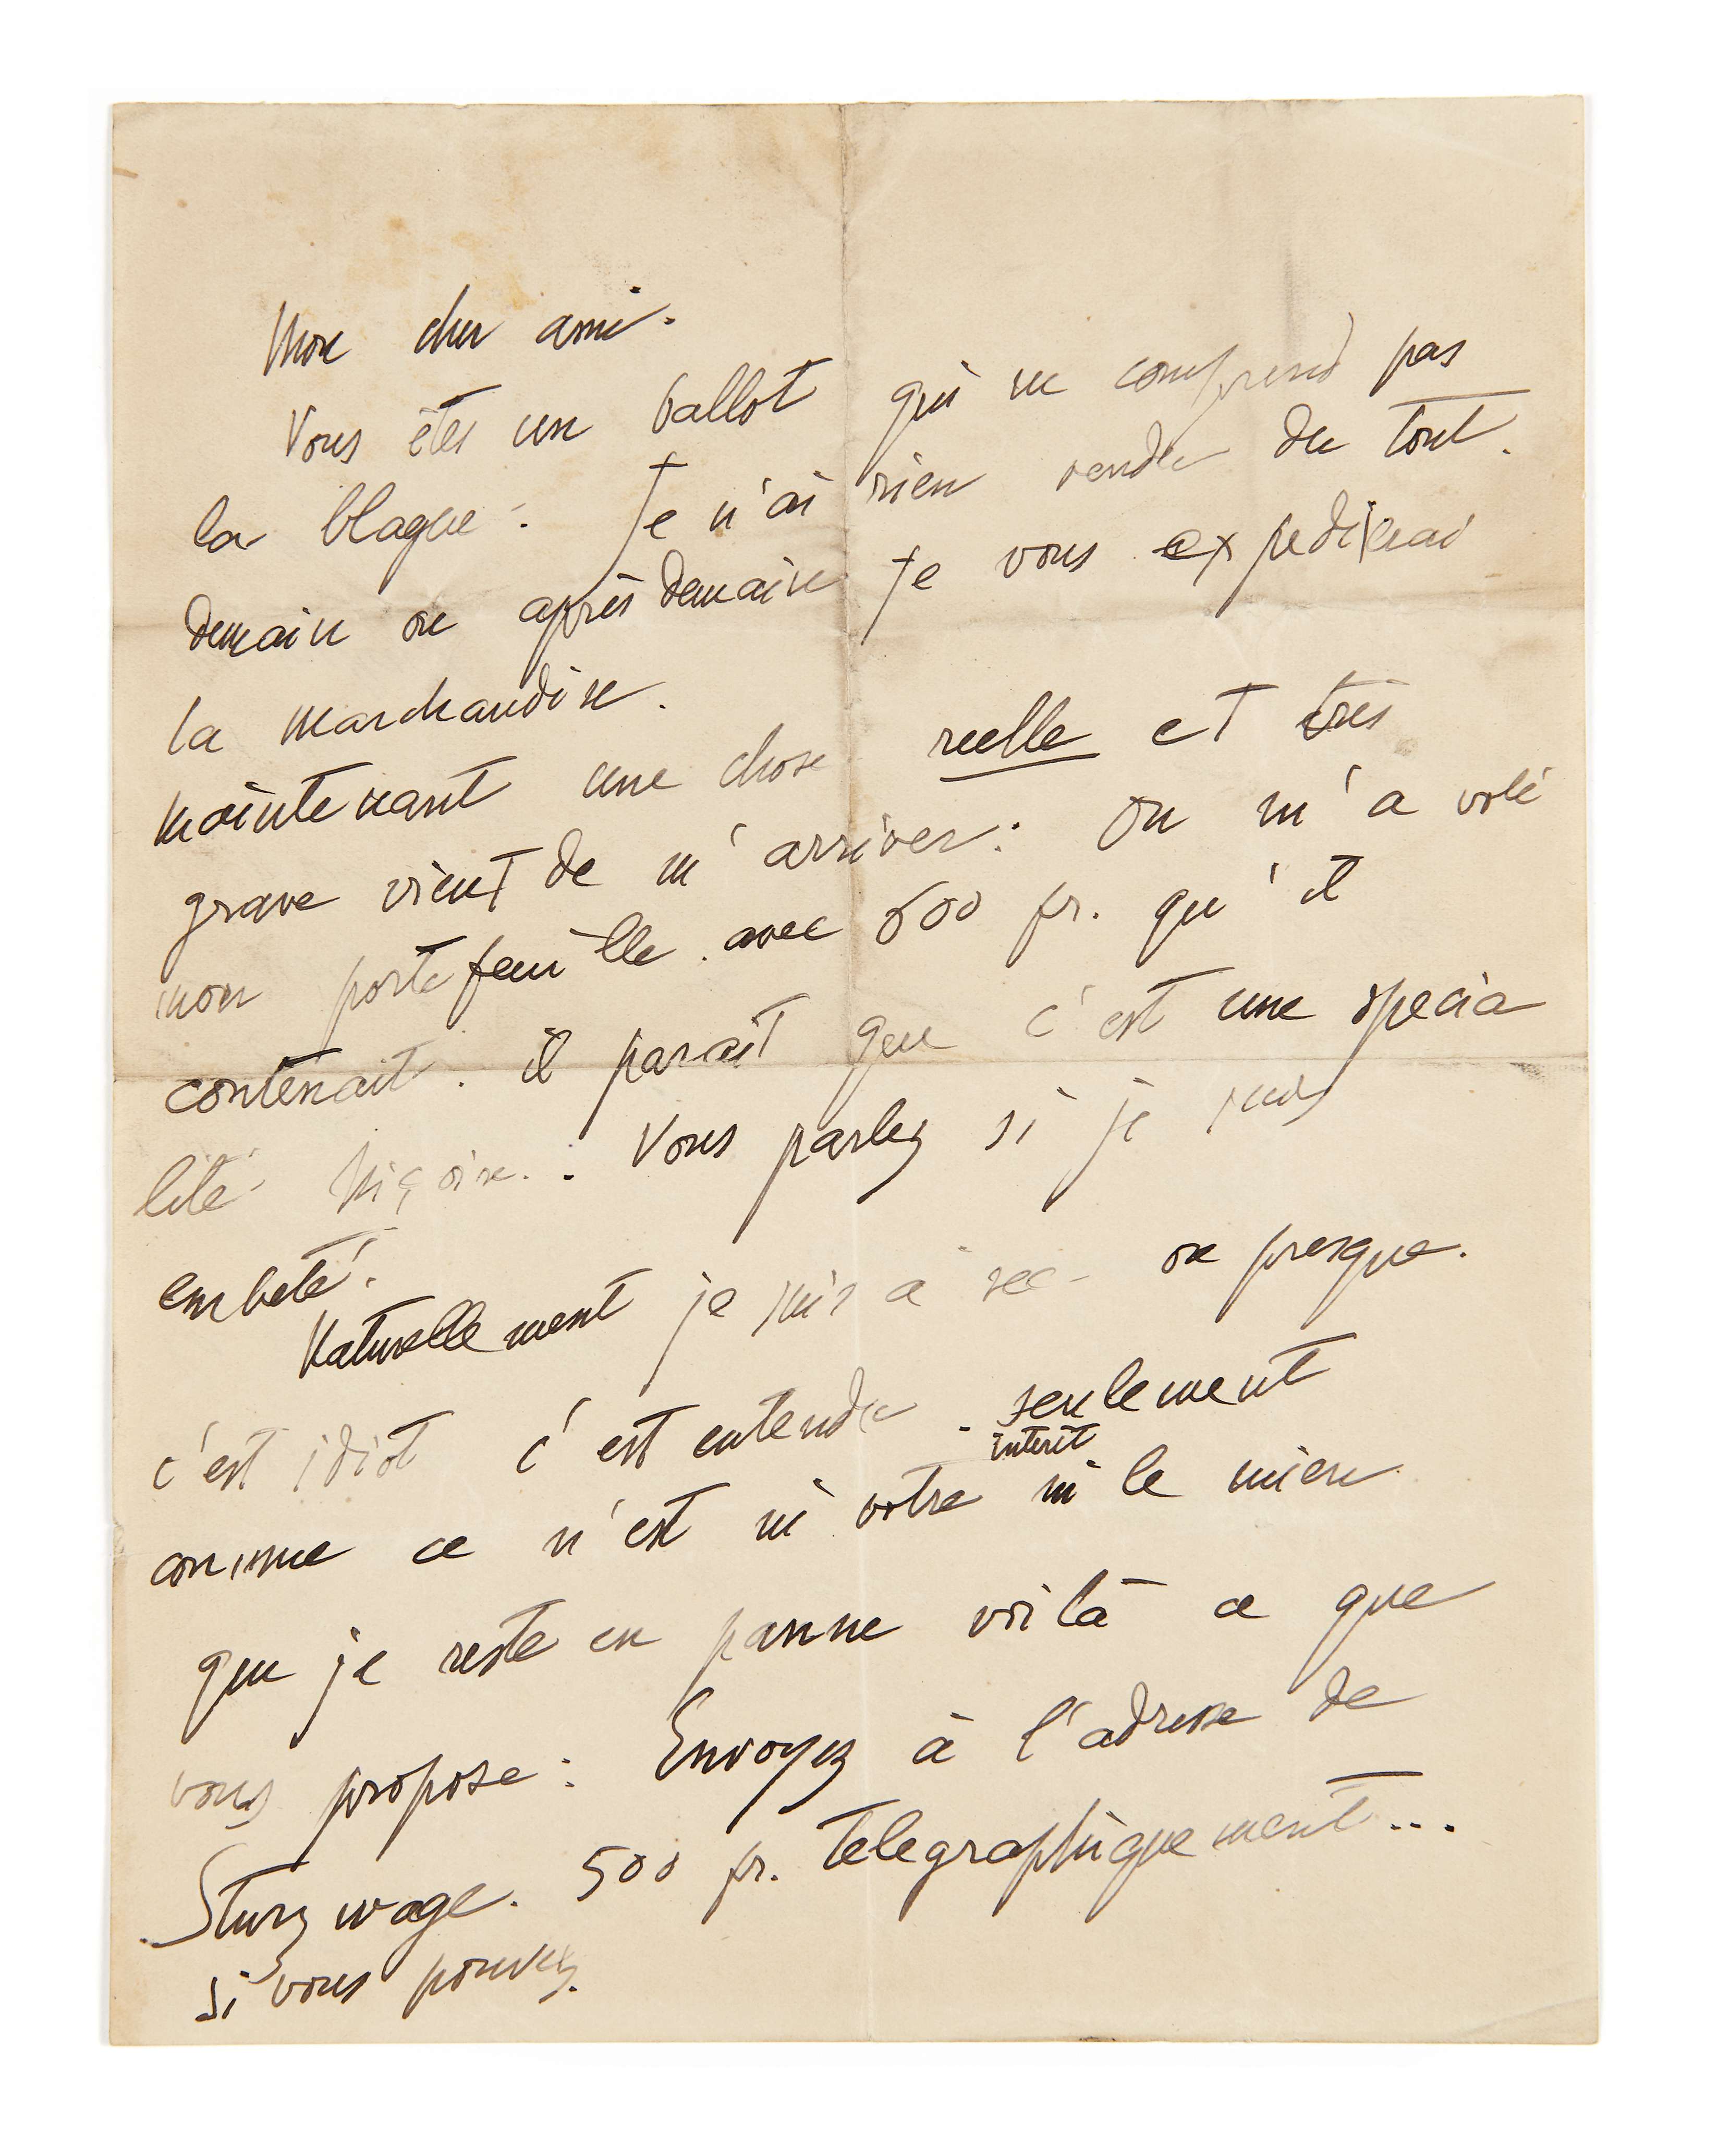 Mon cher ami.
Vous êtes un ballot qui ne comprend pas
la blague. Je n'ai rien vendu du tout.
Demain ou après demain je vous expedierai
la marchandise.
Maintenant une chose reelle et très
grave vient de m'arriver: On m'a volé
mon portefeuille avec 600 fr. qu'il
contenait. il parait que c'est une specia
lité Niçoise. Vous parlez si je suis
embeté.
Naturellement je suis a sec - ou presque.
c'est idiot c'est entendu. seulement
interet
comme ce n'est ni votre ni le mien
que je reste en panne voilà ce que
vous propose: Envoyez à l'adresse de
Sturzwage. 500 fr. telegraphiquement...
si vous pouvez.